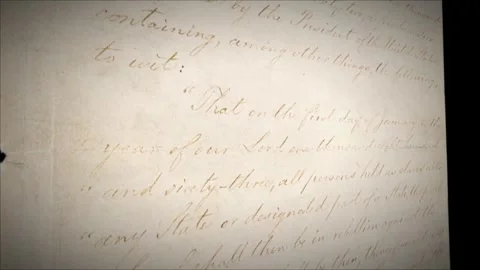 by the President of the United States
containing, among other things, the following,
to wit:
"That on the first day of January, in the
year of our Lord one thousand eight hundred
" and sixty-three, all persons held as slaves within
" any State or designated part of a State, the people
shall then be in rebellion against the
then, thenceforward